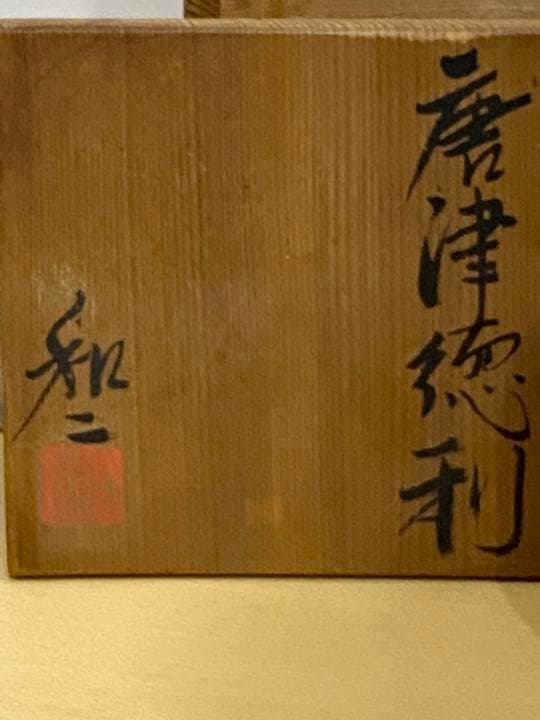 唐津徳利
和二